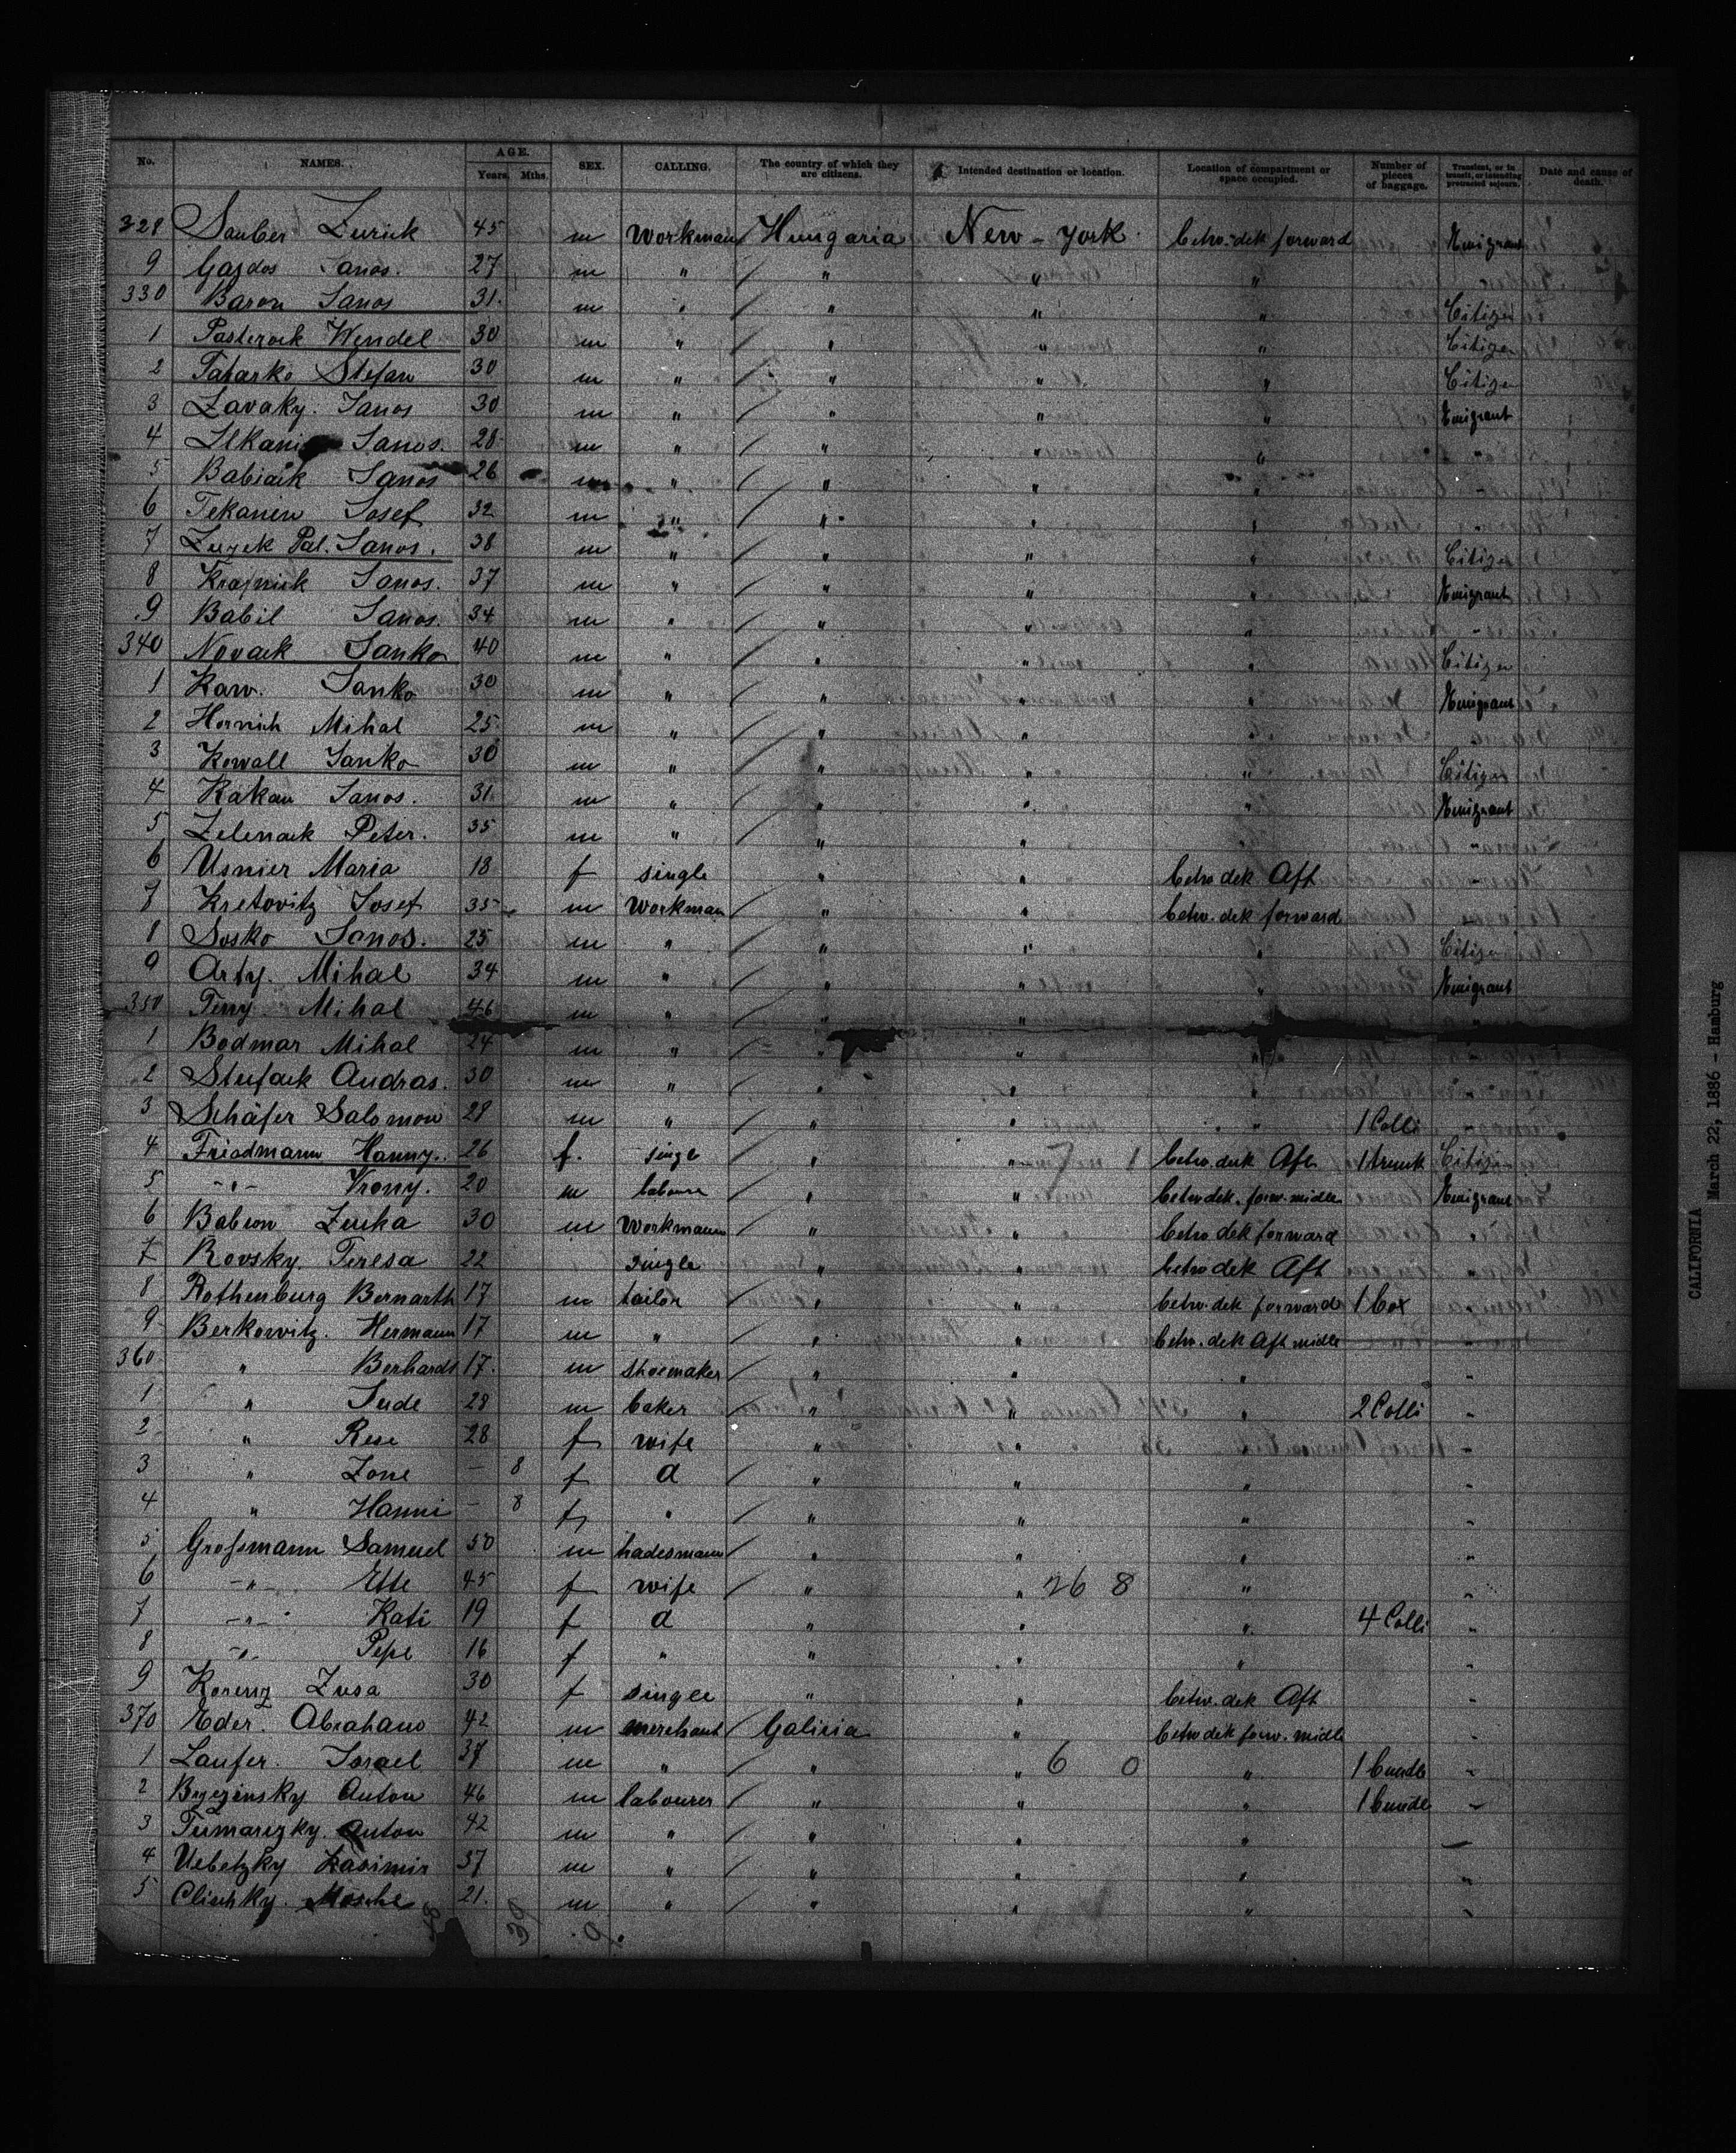 No. NAMES. AGE. Years. Mths. SEX. CALLING. The country of which they are citizens. Intended destination or location. Location of compartment or space occupied. Number of pieces of baggage. Transient, or in transit, or intending protracted sojourn. Date and cause of death.
328 Sauber 45 m Workman Hungaria New-York betw. dek forward Emigrant
9 Gajdos Janos. 27 m " " " "
330 Baron Janos 31. m " " " " Citizen
1 Pasterock Wendel 30 m " " " " Citizen
2 Tatarko Stefan 30 m " " " " Citizen
3 Zavaky. Janos 30 m " " " " Emigrant
4 Janos. 28 m " " " " "
5 Babiack Janos 26 m " " " " "
6 Tekanien Josef 32 m " " " " "
7 Pal. Janos. 38 m " " " " Citizen
8 Krajnick Janos. 37 m " " " " Emigrant
9 Babil Janos. 34 m " " " " "
340 Novack Janko 40 m " " " " Citizen
1 Kaw. Janko 30 m " " " " Emigrant
2 Hornich Mihal 25 m " " " " "
3 Kowall Janko 30 m " " " " Citizen
4 Kakau Janos. 31. m " " " " Emigrant
5 Zelenack Peter. 35 m " " " " "
6 Usnier Maria 18 f single " " betw dek Aft "
7 Kretovitz Josef 35 m Workman " " betw. dek forward "
8 Sosko Janos. 25 m " " " " Citizen
9 Arty. Mihal 34 m " " " " Emigrant
350 Mihal 46 m " " " " "
1 Bodmar Mihal 24 m " " " " "
2 Andras. 30 m " " " " "
3 Schäfer Salomon 28 m " " " " 1 Colli "
4 Friedmann Hanny. 26 f. singl " " 7 1 betw. deck Aft 1 trunk Citizen
5 -"- Vrony. 20 m labourer " " betw dek. forw. midle Emigrant
6 Babron Zuska 30 m Workmann " " betw dek forward "
7 Rovsky Teresa 22 single " " betw dek Aft "
8 Rothenburg Bernarth 17 m tailor " " betw. dek forward 1 box "
9 Berkowitz. Hermann 17 m " " " betw. dek Aft midle "
360 " Berhardt 17. m shoemaker " " " "
1 " Jude 28 m baker " " " 2 Colli "
2 " Rese 28 f wife " " " "
3 " Zone - 8 f d " " " "
4 " Hanni - 8 f " " " " "
5 Großmann Samuel 50 m tradesmann " " " "
6 -"- Ette 45 f wife " " 26 8 " "
7 -"- Kati 19 f d " " " 4 Colli "
8 -"- Pepe 16 f " " " " "
9 Korenz Zusa 30 f single " " betw. dek Aft "
370 Eder. Abraham 42 m merchant Galicia " betw dek forw. midle "
1 Laufer. Israel 37 m " " " 6 0 " 1 bundle "
2 Bryezinsky Anton 46 m labourer " " " 1 bundl "
3 Tumarizky. Anton 42 m " " " " "
4 Uebetzky Kasimir 37 m " " " " "
5 Clischky. Mosche 21. m " " " " "
39
CALIFORNIA March 22, 1886 - Hamburg